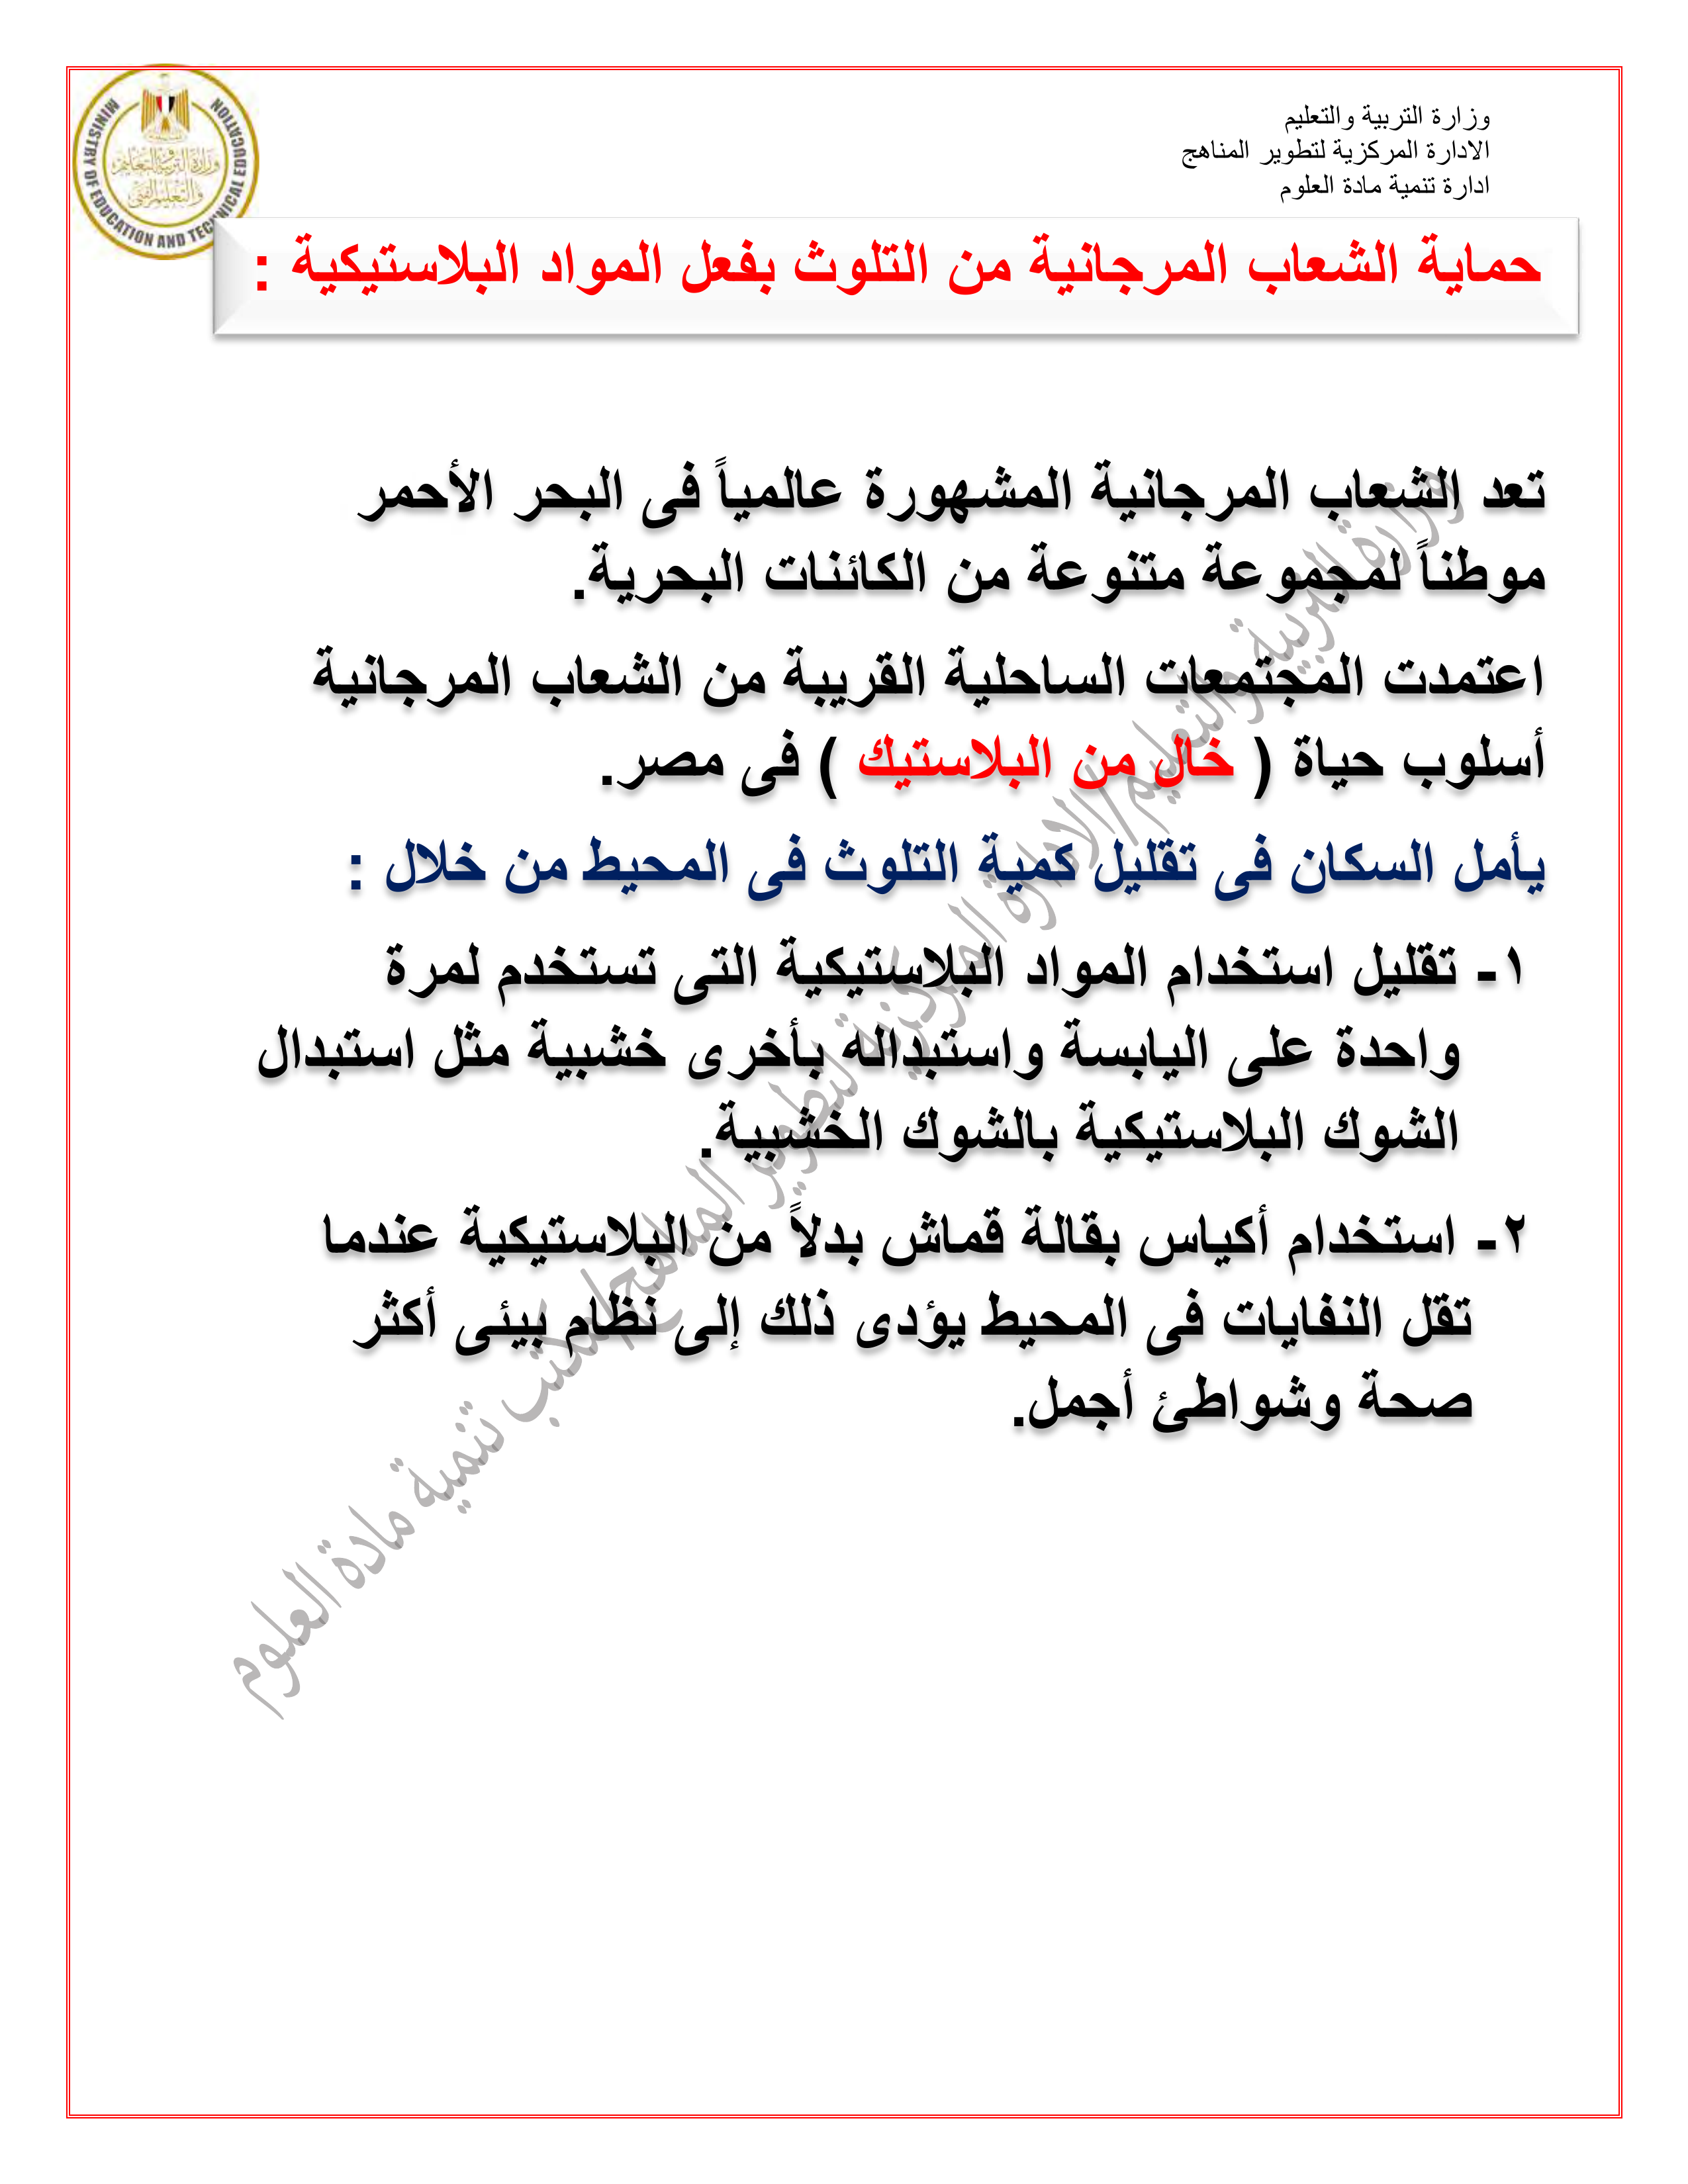 وزارة التربية والتعليم
الادارة المركزية لتطوير المناهج
ادارة تنمية مادة العلوم
MINISTRY OF EDUCATION AND TECHNICAL EDUCATION
وزارة التربية والتعليم
والتعليم الفني
حماية الشعاب المرجانية من التلوث بفعل المواد البلاستيكية :
تعد الشعاب المرجانية المشهورة عالمياً فى البحر الأحمر
موطناً لمجموعة متنوعة من الكائنات البحرية.
اعتمدت المجتمعات الساحلية القريبة من الشعاب المرجانية
أسلوب حياة ( خال من البلاستيك ) فى مصر.
يأمل السكان فى تقليل كمية التلوث فى المحيط من خلال :
١- تقليل استخدام المواد البلاستيكية التى تستخدم لمرة
واحدة على اليابسة واستبداله بأخرى خشبية مثل استبدال
الشوك البلاستيكية بالشوك الخشبية.
٢- استخدام أكياس بقالة قماش بدلاً من البلاستيكية عندما
تقل النفايات فى المحيط يؤدى ذلك إلى نظام بيئى أكثر
صحة وشواطئ أجمل.
وزارة التربية والتعليم/الادارة المركزية لتطوير المناهج/مكتب تنمية مادة العلوم